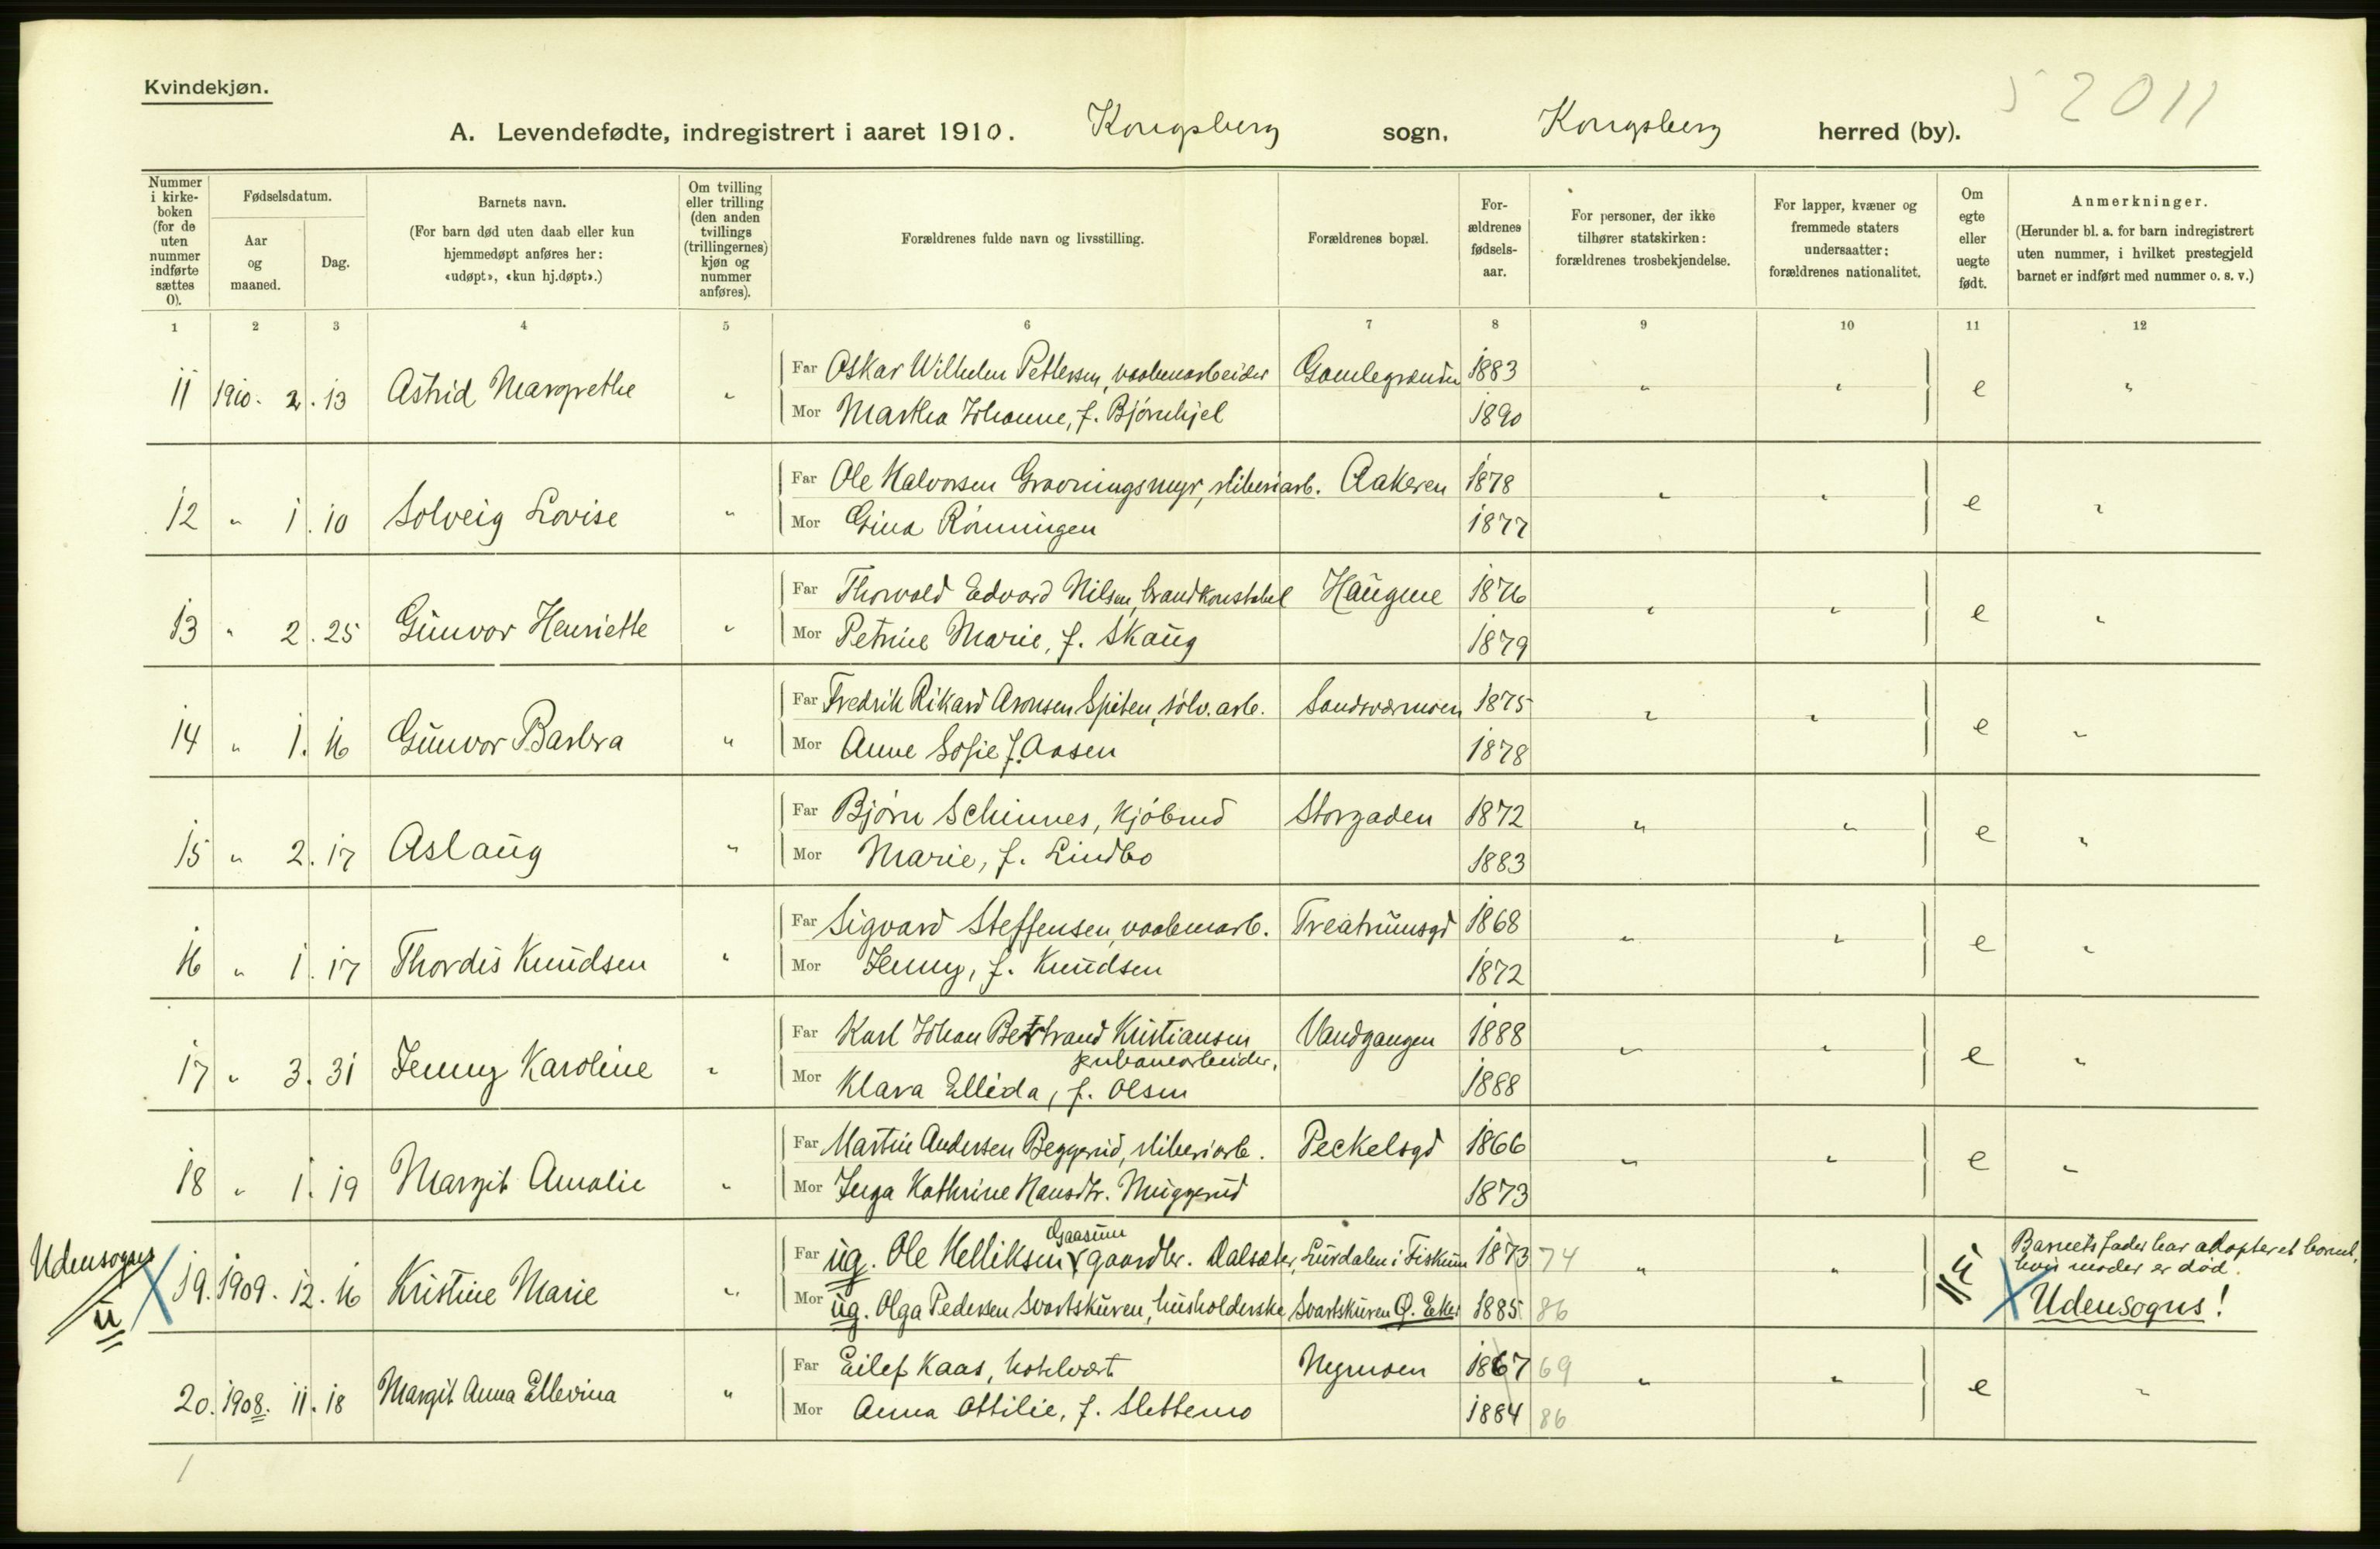 Kvindekjøn.
5 2011
A. Levendefødte, indregistrert i aaret 1910. Kongsberg sogn, Kongsberg herred (by).
Nummer i kirkeboken (for de uten nummer indførte sættes 0).
Fødselsdatum.
Aar og maaned.
Dag.
Barnets navn.
(For barn død uten daab eller kun hjemmedøpt anføres her: «udøpt», «kun hj.døpt».)
Om tvilling eller trilling (den anden tvillings (trillingernes) kjøn og nummer anføres).
Forældrenes fulde navn og livsstilling.
Forældrenes bopæl.
Forældrenes fødselsaar.
For personer, der ikke tilhører statskirken: forældrenes trosbekjendelse.
For lapper, kvæner og fremmede staters undersaatter: forældrenes nationalitet.
Om egte eller uegte født.
Anmerkninger.
(Herunder bl. a. for barn indregistrert uten nummer, i hvilket prestegjeld barnet er indført med nummer o. s. v.)
1 2 3 4 5 6 7 8 9 10 11 12
Far Oskar Wilhelm Pettersen, vaabenarbeider Gamlegrænden 1883
11 1910. 2. 13 Astrid Margrethe " " " e "
Mor Martha Johanne, f. Bjørnhjel 1890
Far Ole Halvorsen Gravningsmyr, sliberiarb. Aakeren 1878
12 " 1. 10 Solveig Lovise " " " e "
Mor Gina Rönningen 1877
Far Thorvald Edvard Nilsen, brandkonstabel Haugene 1876
13 " 2. 25 Gunvor Henriette " " " e "
Mor Petrine Marie, f. Skaug 1879
Far Fredrik Rikard Aronsen Spiten, sølv. arb. Sandsværmoen 1875
14 " 1. 16 Gunvor Barbra " " " e "
Mor Anne Sofie f. Aasen 1878
Far Bjørn Schinnes, kjöbmd Storgaden 1872
15 " 2. 17 Aslaug " " " e "
Mor Marie, f. Lindbo 1883
Far Sigvard Steffensen, vaabenarb. Treatrumsgd 1868
16 " 1. 17 Thordis Knudsen " " " e "
Mor Jenny, f. Knudsen 1872
Far Karl Johan Bertrand Kristiansen Vandgangen 1888
jernbanearbeider,
17 " 3. 31 Jenny Karoline " " " e "
Mor Klara Ellida, f. Olsen 1888
Far Martin Andersen Beggerud, sliberiarb. Peckelsgd 1866
18 " 1. 19 Margit Amalie " " " e "
Mor Inga Kathrine Hansdtr. Muggerud 1873
Udensogns
u
Gaasum
Far ug. Ole Helliksen gaardbr. Dalsæter, Lurdalen i Fiskum 1873 74
19. 1909. 12. 16 Kristine Marie " " " u
Barnets fader har adopteret barnet,
hvis moder er död.
Udensogns!
Mor ug. Olga Pedersen Svartskuren, husholderske Svartskuren Ø. Eker 1885 86
Far Eilef Kaas, hotelvært Nymoen 1867 69
20. 1908. 11. 18 Margit Anna Ellevina " " " e "
Mor Anna Ottilie, f. Slettemo 1884 86
1